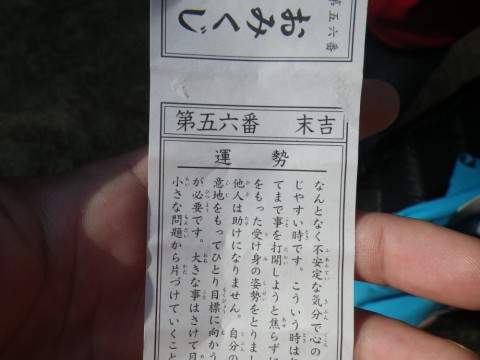 第五六番
おみくじ
第五六番 末吉
運勢
なんとなく不安定な気分で心の
じやすい時です。こういう時は
てまで事を打開しようと焦らずに
をもった受け身の姿勢をとりま
他人は助けになりません。自分の
意地をもってひとり目標に向かう
が必要です。大きな事はさけて目
小さな問題から片づけていくこと